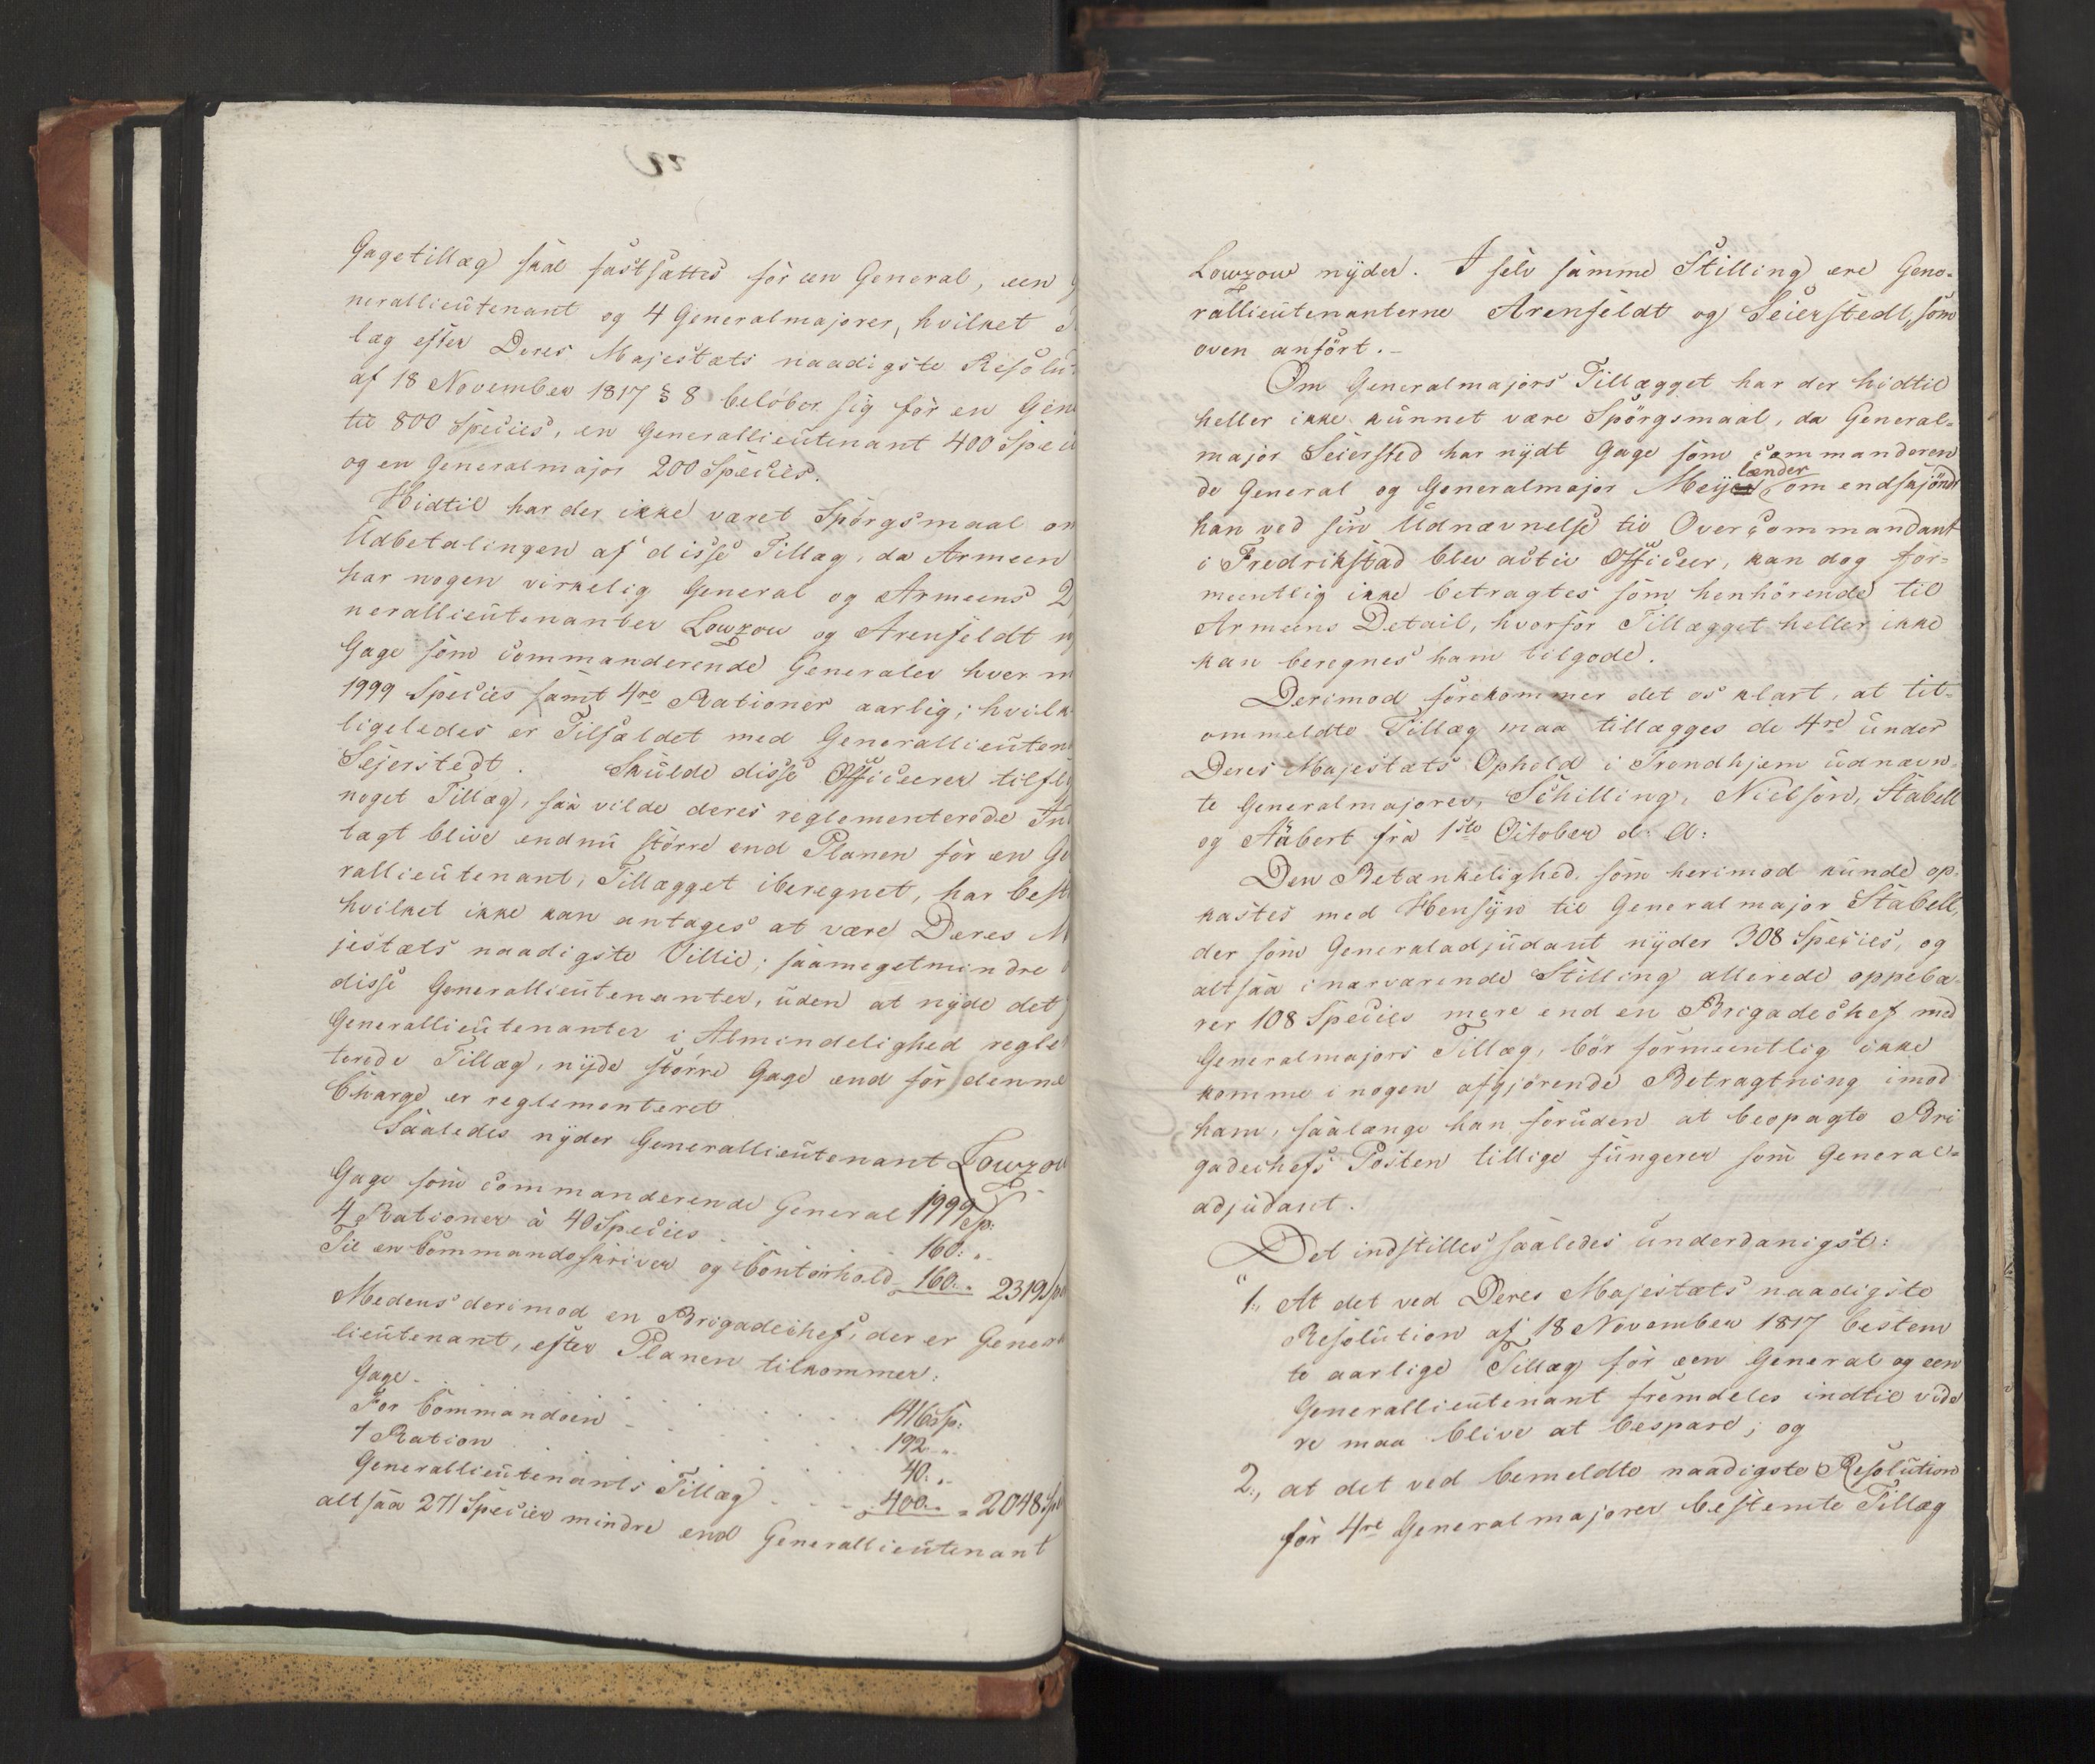 Gagetillæg skal fastsættes for een General, een
nerallieutenant og 4 Generalmajorer, hvilket
læg efter Deres Majestæts naadigste Resolu-
af 18 November 1817 § 8 beløber sig for en Gene
til 800 Species, en Generallieutenant 400 Speci
og en Generalmajor 200 Species.
Hidtil har der ikke været Spørgsmaal om
Udbetalingen af disse Tillæg, da Armeen
har nogen virkelig General og Armeens 2
nerallieutenanter Lowzow og Arenfeldt
Gage som commanderende Generaler hver m
1999 Species samt 4re Rationer aarlig; hvilk
ligeledes er Tilfældet med Generallieuten
Sejerstedt. Skulde disse Officerer tilfly
noget Tillæg, saa vilde deres reglementerede In
tægt blive endnu større end Planen for en Ge
rallieutenant, Tillægget iberegnet, har best
hvilket ikke kan antages at være Deres M
jestæts naadigste Villie; saameget mindre
disse Generallieutenanter, uden at nyde det
Generallieutenanter i Almindelighed regle
terede Tillæg, nyde større Gage end for denne
Charge er reglementeret
Saaledes nyder Generallieutenant Lowzow
Gage som commanderende General 1999 Sp:
4 Rationer à 40 Species . . . 160: "
Til en Commandoskriver og Contoirhold 160. " 2319 Sp
Medens derimod en Brigadechef, der er General
lieutenant, efter Planen tilkommer:
Gage . . . 1416 Sp:
For Commandoen . . . 192 "
1 Ration . . . 40: "
Generallieutenants Tillæg . . . 400 " = 2048 Sp
altsaa 271 Species mindre end Generallieutenant
Lowzow nyder. I selv samme Stilling ere Gene-
rallieutenanterne Arenfeldt og Seierstedt, som
oven anført.-
Om Generalmajors Tillægget har der hidtil
heller ikke kunnet være Spørgsmaal, da General-
major Seiersted har nydt Gage som commanderen
lænder
de General og Generalmajor Meyer, om endskjøndt
han ved sin Udnævnelse til Overcommandant
i Fredrikstad blev activ Officeer, kan dog for-
meentlig ikke betragtes som henhørende til
Armeens Detail, hvorfor Tillægget heller ikke
kan beregnes ham tilgode.
Derimod forekommer det os klart, at tit-
ommeldte Tillæg maa tillægges de 4re under
Deres Majestæts Ophold i Trondhjem udnævn-
te Generalmajorer, Schilling, Nielson, Stabell
og Aubert fra 1ste October d: A:
Den Betænkelighed, som herimod kunde op-
kastes med Hensyn til Generalmajor Stabell,
der som Generaladjudant nyder 308 Species, og
altsaa i nærværende Stilling allerede oppebæ-
rer 108 Species mere end en Brigadechef med
Generalmajors Tillæg, bør formeentlig ikke
komme i nogen afgjørende Betragtning imod
ham, saalænge han foruden at beopagte Bri
gadechefs Posten tillige fungerer som General-
adjudant.
Det indstilles saaledes underdanigst:
"1., At det ved Deres Majestæts naadigste
Resolution af 18 November 1817 bestem
te aarlige Tillæg for een General og een
Generallieutenant fremdeles indtil vide
re maa blive at bespare; og
2., at det ved bemeldte naadigste Resolution
for 4re Generalmajorer bestemte Tillæg